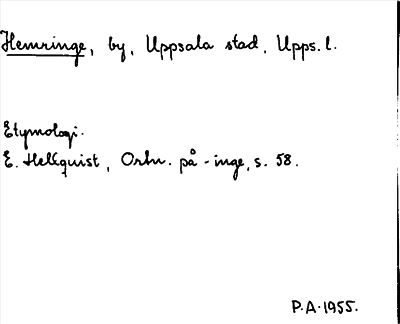 Hemringe, by, Uppsala stad, Upps. l.
Etymologi.
E. Hellquist, Ortn. på -inge, s. 58.
P.A. 1955.